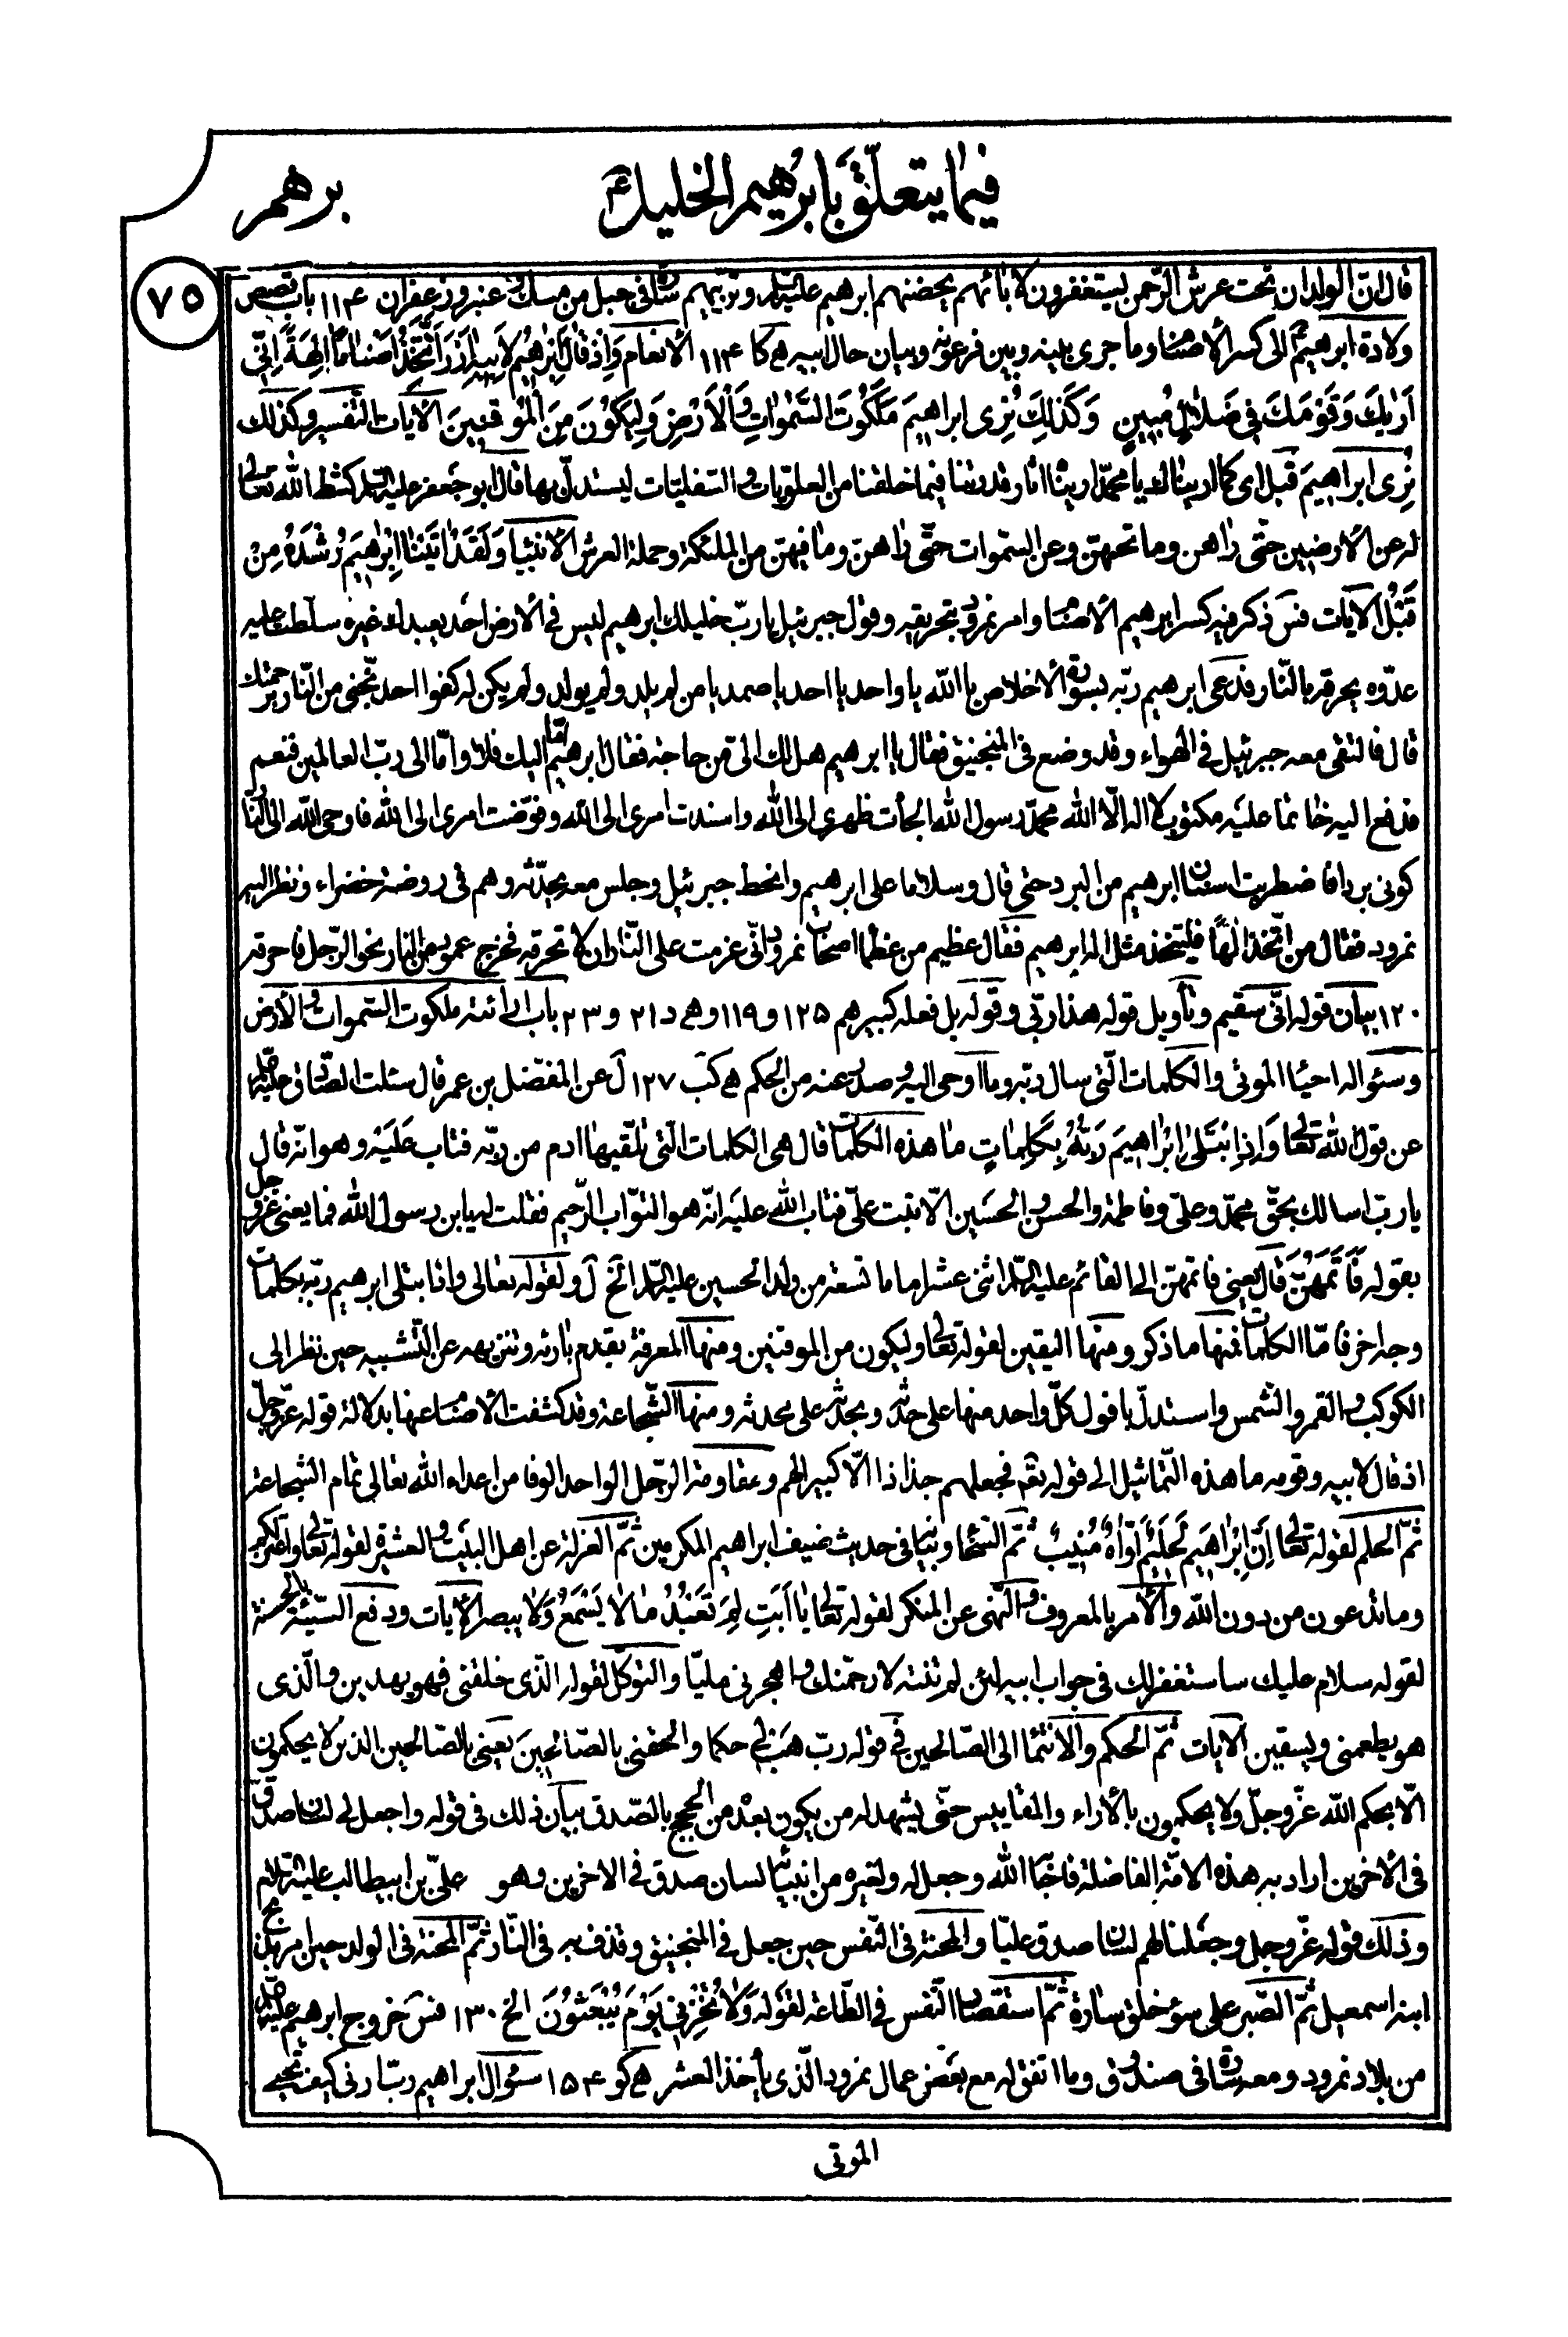 فيما يتعلّق بابرهيم الخليل ع
برهم
٧٥
قال انّ الولدان تحت عرش الرّحمن يستغفرون لآبائهم يحضنهم ابرهيم عليه السلام وتربّيهم سارة فى جبل من مسك وعنبر وزعفران ١١۴ باب قصص
ولادة ابرهيم ع الى كسر الأصنام وما جرى بينه وبين فرعونه وبيان حال ابيه هـ كا ١١۴ الأنعام وَاِذ قالَ اِبْرٰهيمُ لِاَبيهِ اٰزَرَ اَتَتَّخِذُ اَصْناماً اٰلِهَةً اِنّى
اَرٰيكَ وَقَوْمَكَ فى ضَلالٍ مُبينٍ وَكَذلِكَ نُرى ابراهيمَ مَلَكُوتَ السَّمٰواتِ وَالْاَرْضِ وَلِيَكُونَ مِنَ الْمُوقِنينَ الآيات التّفسير وكذلك
نُرى ابراهيمَ قبل اى كما اريناك يا محمّد اريناه اثار قدرتنا فيما خلقنا من العلويات والسّفليّات ليستدلّ بها قال ابو جعفر عليه السلام كشط الله تعالى
له عن الارضين حتّى راهن وما تحتهنّ وعن السّموات حتّى راهنّ وما فيهنّ من الملئكة وحملة العرش الأنبياء وَلَقَدْ اٰتَيْنا اِبْرٰهيمَ رُشْدَهُ مِنْ
قَبْلُ الآيات فس ذكر فيه كسر ابرهيم الأصنام وامر نمرود بتحريقه وقول جبرئيل يا ربّ خليلك ابرهيم ليس فى الأرض احد يعبدك غيره سلّطت عليه
عدوّه يحرقه بالنّار فدعى ابرهيم ربّه بسورة الأخلاص يا الله يا واحد يا احد يا صمد يا من لم يلد ولم يولد ولم يكن له كفوا احد نجّنى من النّار برحمتك
قال فالتقى معه جبرئيل فى الهواء وقد وضع فى المنجنيق فقال يا ابرهيم هل لك الىّ من حاجة فقال ابرهيم امّا اليك فلا وامّا الى ربّ العالمين فنعم
فدفع اليه خاتما عليه مكتوب لا اله الّا الله محمّد رسول الله الجأت ظهرى الى الله واسندت امرى الى الله وفوّضت امرى الى الله فاوحى الله الى النّار
كونى بردا فاضطربت اسنان ابرهيم من البرد حتى قال وسلاما على ابرهيم وانحط جبرئيل وجلس معه يحدّثه وهم فى روضة خضراء ونظر اليه
نمرود فقال من اتّخذ الٰهاً فليتّخذ مثل اله ابرهيم فقال عظيم من عظماء اصحاب نمرود انّى عزمت على النّار ان لا تحرقه فخرج عمود من النار نحو الرّجل فاحرقه
١٢٠ بيان قوله انّى سقيم وتأويل قوله هذا ربّى وقوله بل فعله كبيرهم ١٢٥ و١١٩ وهـ د ٢١ و٢٣ باب ارائته ملكوت السّموات والأرض
وسئواله احياء الموتى والكلمات الّتى سال ربّه وما اوحى اليه وصدر عنه من الحكم هـ كب ١٢٧ ل عن المفضّل بن عمر قال سئلت الصّادق عليه السلام
عن قول الله تعالى وَاِذِ ابْتَلىٰ اِبْراهيمَ رَبُّهُ بِكَلِماتٍ ما هذه الكلمات قال هى الكلمات الّتى تلقّيها ادم من ربّه فتاب عَلَيْه وهو انّه قال
يا ربّ اسالك بحقّ محمّد وعلىّ وفاطمة والحسن والحسَين الّا تبت علىّ فتاب الله عليه انّه هو التوّاب الرّحيم فقلت له يا بن رسول الله فما يعنى عزّ وجلّ
بقوله فَاَتَمَّهُنَّ قال يعنى فاتمهنّ الى القائم عليه السلام اثنى عشر اماما تسعة من ولد الحسين عليه السلام الخ ل ولقوله تعالى واذا بتلى ابرهيم ربّه بكلمات
وجه اخر فامّا الكلمات فمنها ما ذكر ومنها اليقين لقوله تعالى وليكون من الموقنين ومنها المعرفة بقدم بارئه وتنزيهه عن التّشبيه حين نظر الى
الكوكب والقمر والشّمس واستدلّ بافول كلّ واحد منها على حدثه وبحدثه على محدثه ومنها الشّجاعة وقد كشفت الأصنام عنها بدلالة قوله عزّ وجلّ
اذ قال لابيه وقومه ما هذه التّماثيل الى قوله تعم فجعلهم جذاذا الّا كبيرا لهم ومقاومة الرّجل الواحد الوفا من اعداء الله تعالى تمام الشّجاعة
ثمّ الحلم لقوله تعالى اِنَّ اِبْراهيمَ لَحَليمٌ اَوّاهٌ مُنيبٌ ثمّ السّخاء وبيانه فى حديث ضيف ابراهيم المكرمين ثمّ العزلة عن اهل البيت والعشيرة لقوله تعالى واعتزلكم
وما تدعون من دون الله والأمر بالمعروف والنّهى عن المنكر لقوله تعالى يا اَبَتِ لِمَ تَعْبُدُ ما لا يَسْمَعُ وَلا يبصر الآيات ودفع السّيّئة بالحسنة
لقوله سلام عليك ساستغفر لك فى جواب ابيه لئن لم تنته لارجمنّك واهجرنى مليّا والتوكّل لقوله الّذى خلقنى فهو يهدين والّذى
هو يطعمنى ويسقين الآيات ثمّ الحكم والأنتماء الى الصّالحين فى قوله ربّ هب لى حكما والحقنى بالصّالِحينَ يعنى بالصّالحين الذين لا يحكمون
الّا بحكم الله عزّ وجلّ ولا يحكمون بالأراء والمقاييس حتّى يشهد له من يكون بعده من الحجج بالصّدق بيان ذلك فى قوله واجعل لى لسان صدق
فى الأخرين اراد به هذه الامّة الفاضلة فاجابه الله وجعل له ولغيره من انبيائه لسان صدق فى الاخرين وهو علىّ بن ابيطالب عليه السلام
وذلك قوله عزّ وجلّ وجعلنا لهم لسان صدق عليّا والمحنة فى النّفس حين جعل فى المنجنيق وقذف به فى النّار ثمّ المحنة فى الولد حين امر بذبح
ابنه اسمعيل ثمّ الصّبر على سوء خلق سارة ثمّ استقصاء النّفس فى الطّاعة لقوله وَلا تُخْزِنى يَوْمَ يُبْعَثُونَ الخ ١٣٠ فس خروج ابرهيم عليه السلام
من بلاد نمرود ومعه سارة فى صندوق وما اتفق له مع بعض عمال نمرود الّذى يأخذ العشر هـ كو ١٥۴ سئوال ابراهيم ربّ ارنى كيف تحيى
الموتى